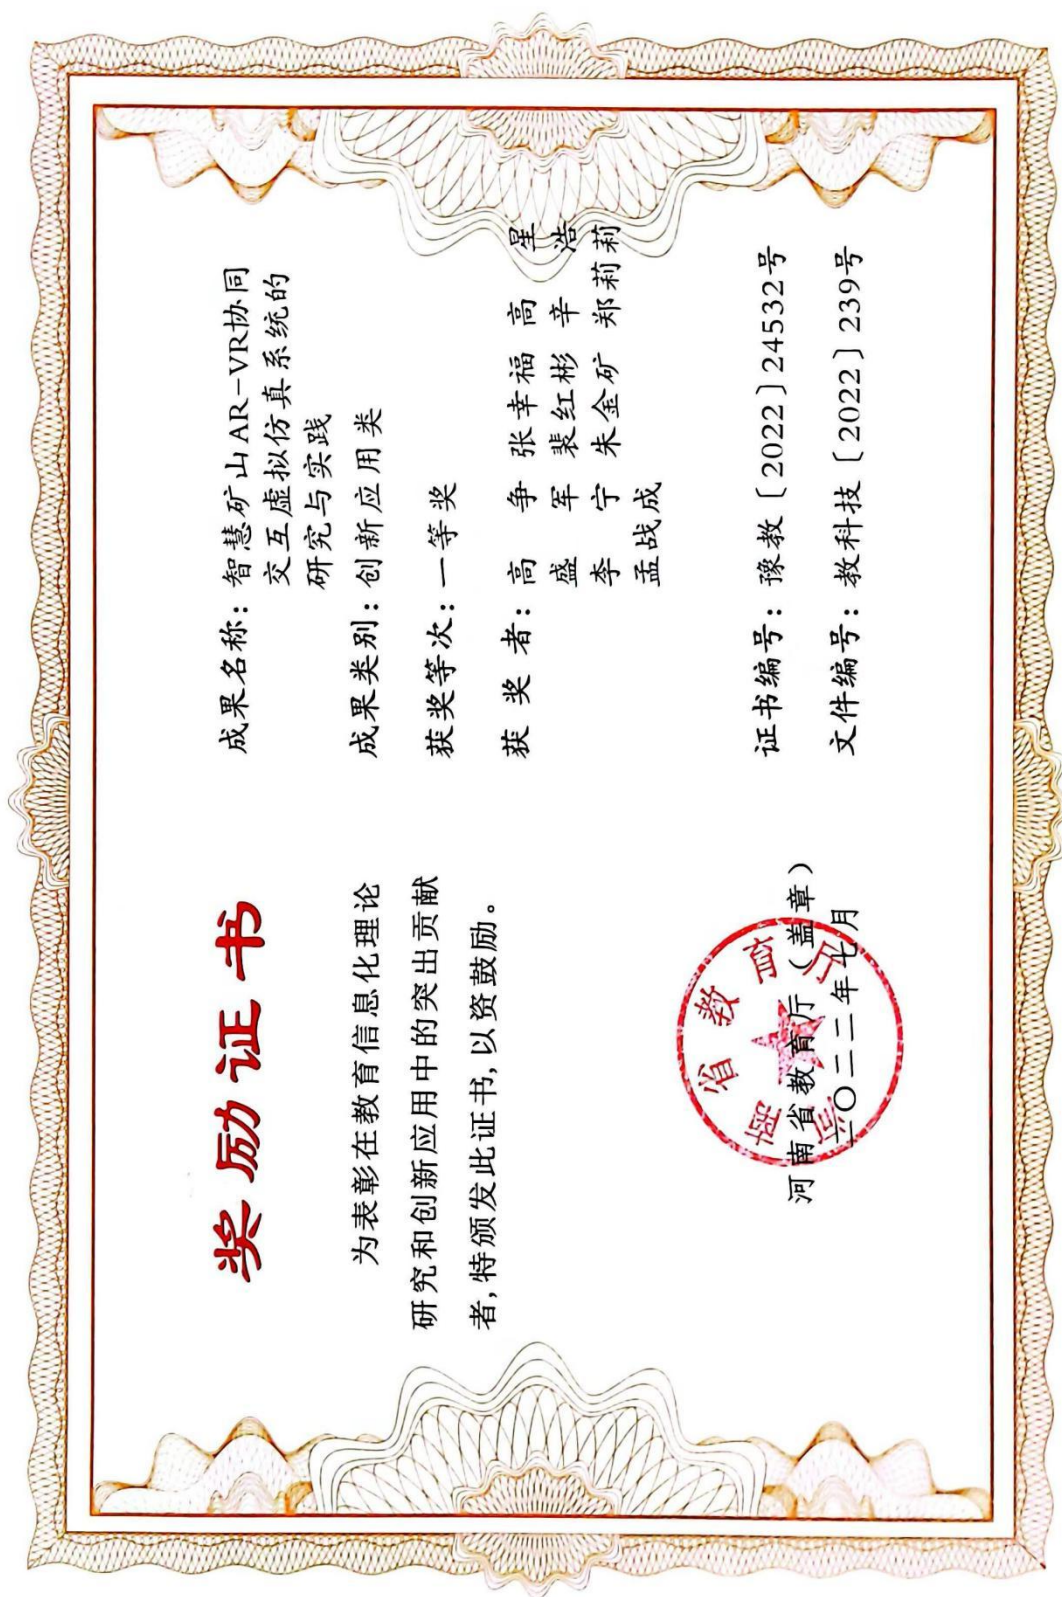 奖励证书
为表彰在教育信息化理论
研究和创新应用中的突出贡献
者,特颁发此证书,以资鼓励。
河南省教育厅
河南省教育厅（盖章）
二〇二二年七月
成果名称：智慧矿山AR-VR协同
交互虚拟仿真系统的
研究与实践
成果类别：创新应用类
获奖等次：一等奖
获 奖 者：高 争 张幸福 高 星
盛 军 裴红彬 辛 浩
李 宁 朱金矿 郑莉莉
孟战成
证书编号：豫教〔2022〕24532号
文件编号：教科技〔2022〕239号